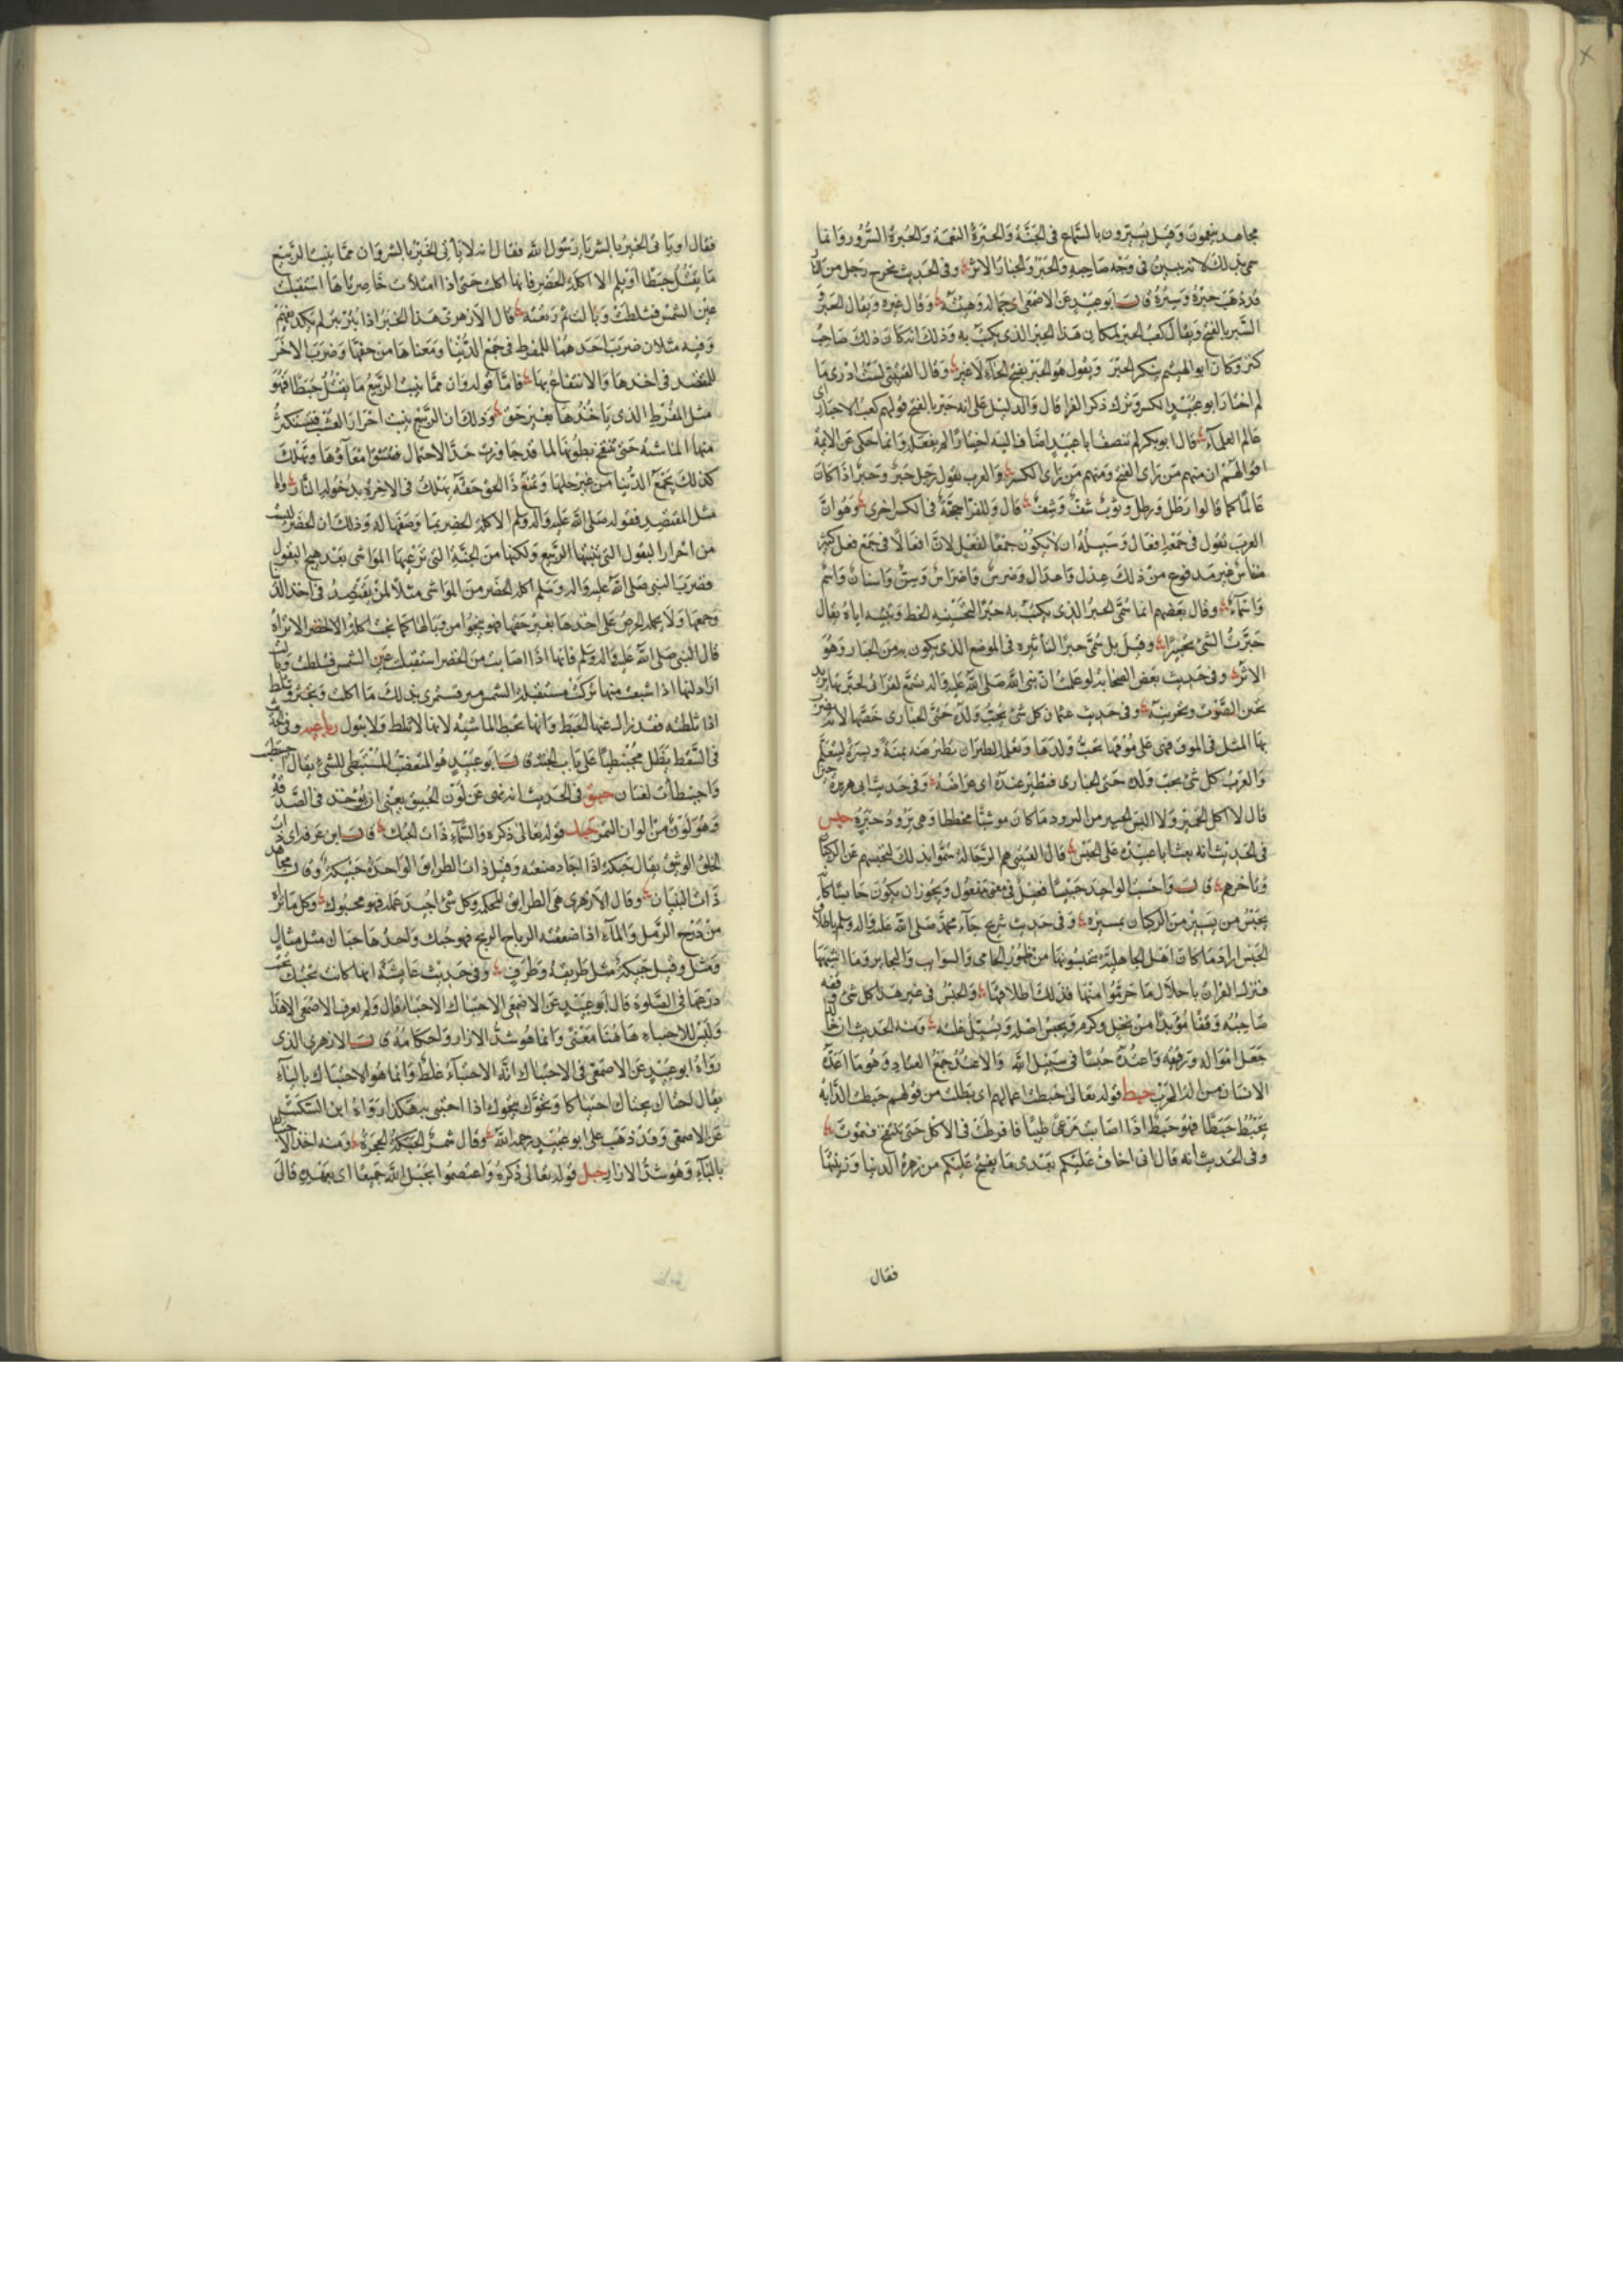 مجاهد ينعمون وقيل يسترون بالسماع في الجنة والحبرة النعمة والحبرة السرور وانما
سمي بذلك لانه يبين في وجه صاحبه والحبر والحبار الاثر وفي الحديث يخرج رجل من النار
قد ذهب حبره وسبره قال ابو عبيد عن الاصمعي اي جماله وهيئته وقال غيره ويقال الحبر و
السبر بالفتح ويقال كعب الحبر لمكان هذا الحبر الذي يكتب به وذلك انه كان ذلك صاحب
كتب وكان ابو الهيثم ينكر الحبر ويقول هو الحبر بفتح الحاء لا غير وقال القتيبي لست ادري ما
لم اختار ابو عبيد الكسر وترك ذكر الفراء قال والدليل على انه حبر بالفتح قولهم كعب الاحبار اي
عالم العلماء قال ابو بكر لم ينصف ابا عبيد اضاف اليه اختيارا لم يفعله وانما حكى عن الائمة
اقوالهم ان منهم من راى الفتح ومنهم من راى الكسر والعرب تقول رجل حبر وحبر اذا كان
عالما كما قالوا رطل ورطل وثوب شف وشف قال وللفراء حجة في الكسر اخرى وهو ان
العرب تقول في جمعه افعال وسبيله ان لا يكون جمعا لفعل لان افعالا في جمع فعل كثير
مقاس غير مدفوع من ذلك عدل واعدال وضرس واضراس وسن واسنان واسم
واسماء وقال بعضهم انما سمي الحبر الذي يكتب به حبرا لتحسينه الخط وتبيينه اياه يقال
حبرت الشئ تحبيرا وقيل بل سمي حبرا لتأثيره في الموضع الذي يكون به من الحبار وهو
الاثر وفي حديث بعض الصحابة لو علمت ان نبي الله صلى الله عليه واله يسمع لقراءتي لحبرتها يريد
تحسين الصوت وتحزينه وفي حديث عثمان كل شئ يحب ولده حتى الحبارى خصها لانه يضرب
بها المثل في الموق فهي على موقها تحب ولدها وتعلمه الطيران تطير عنه يمنة ويسرة ليتعلم
والعرب كل شئ يحب ولده حتى الحبارى فتطير عنده اي عراضه وفي حديث ابي هريرة حين
قال لا اكل الخمير ولا البس الحبير من البرود ما كان موشيا مخططا وهي برود حبرة حبس
في الحديث انه بعث ابا عبيدة على الحبس قال القتيبي هم الرجالة سموا بذلك لتحبسهم عن الركبان
وتأخرهم قال واحسب الواحد حبيسا فعيل في معنى مفعول ويجوز ان يكون حابسا كانه
يحبس من يسير من الركبان بمسيره وفي حديث شريح جاء محمد صلى الله عليه واله وسلم باطلاق
الحبس اراد ما كان اهل الجاهلية يحبسونها من ظهور الحامي والسوائب والبحاير وما اشبهها
فنزل القران باحلال ما حرموا منها فذلك اطلاقها والحبس في غير هذا كل شئ وقفه
صاحبه وقفا مؤبدا من نخل وكرم ويحبس اصله ويسبل غلته ومنه الحديث ان خالدا
جعل امواله ورقيقه واعتده حبسا في سبيل الله والاعتد جمع العتاد وهو ما اعده
الانسان من الة الحرب حبط قوله تعالى حبطت اعمالهم اي بطلت من قولهم حبطت الدابة
تحبط حبطا فهو حبط اذا اصابت مرعى طيبا فافرطت في الاكل حتى تنتفخ فتموت
وفي الحديث انه قال اني اخاف عليكم بعدي ما يفتح عليكم من زهرة الدنيا وزينتها
فقال
فقال اوياتي الخير بالشر يا رسول الله فقال انه لا ياتي الخير بالشر وان مما ينبت الربيع
ما يقتل حبطا او يلم الا اكلة الخضر فانها اكلت حتى اذا امتلأت خاصرتاها استقبلت
عين الشمس فثلطت وبالت ثم رتعت قال الازهري هذا الخبر اذا بتر بتر لم يكد يفهم
وفيه مثلان ضرب احدهما للمفرط في جمع الدنيا ومنعها من حقها وضرب الاخر
للمقتصد في اخذها والانتفاع بها فاما قوله وان مما ينبت الربيع ما يقتل حبطا فهو
مثل المفرط الذي ياخذها بغير حق وذلك ان الربيع ينبت احرار العشب فتستكثر
منها الماشية حتى تنتفخ بطونها لما قد جاوزت حد الاحتمال فتنشق امعاؤها وتهلك
كذلك يجمع الدنيا من غير حلها ومنع ذا الحق حقه يهلك في الاخرة بدخوله النار واما
مثل المقتصد فقوله صلى الله عليه واله وسلم الا اكلة الخضر بما وصفها له وذلك ان الخضر ليست
من احرار البقول التي ينبتها الربيع ولكنها من الجنبة التي ترعيها المواشي بعد هيج البقول
فضرب النبي صلى الله عليه واله وسلم اكلة الخضر من المواشي مثلا لمن يقتصد في اخذ الدنيا
وجمعها ولا يحمله الحرص على اخذها بغير حقها فهو ينجوا من وبالها كما نجت اكلة الخضر الا تراه
قال النبي صلى الله عليه واله وسلم فانها اذا اصابت من الخضر استقبلت عين الشمس فثلطت وبالت
اراد انها اذا شبعت منها بركت مستقبلة الشمس تستمري بذلك ما اكلت وتجتر وتثلط
اذا ثلطته فقد زال عنها الحبط وانما تحبط الماشية لانها لا تثلط ولا تبول رباعيه وفي الحديث
في السقط يظل محبنطيا على باب الجنة قال ابو عبيد هو المتغضب المستبطئ للشئ يقال احبنطيت
واحبنطأت لغتان حبق في الحديث انه نهى عن لون الحبيق يعني ان يؤخذ في الصدقة
وهو لون من الوان التمر حبك قوله تعالى ذكره والسماء ذات الحبك قال ابن عرفة اي ذات
الخلق الوثيق يقال حبكه اذا اجاد صنعته وقيل ذات الطرائق الواحدة حبيكة وقال مجاهد
ذات البنيان وقال الازهري هي الطرايق المحكمة وكل شئ اجيد عمله فهو محبوك وكل ما تراه
من درج الرمل والماء اذا صفقته الرياح فهو حبك واحدها حباك مثل مثال
ومثل وقيل حبيكة مثل طريقة وطرق وفي حديث عايشة انها كانت تحتبك تحت
درعها في الصلوة قال ابو عبيد عن الاصمعي الاحتباك الاحتباء قال ولم يعرف الاصمعي الا هذا
وليس للاحتباء هاهنا معنى وانما هو شد الازار واحكامه قال الازهري الذي
رواه ابو عبيد عن الاصمعي في الاحتباك انه الاحتباء غلط وانما هو الاحتياك بالياء
يقال احتاك يحتاك احتياكا وتحوك بثوبه اذا احتبى به هكذا رواه ابن السكيت
عن الاصمعي وقد ذهب على ابو عبيد رحمه الله وقال شمر الحبكة الحجزة ومنه اخذ الاحتباك
بالباء وهو شد الازار حبل قوله تعالى ذكره واعتصموا بحبل الله جميعا اي بعهده قال